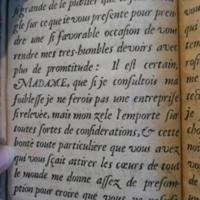 si grande de le publier que
gle sur ce que ie vous presente pour pren-
dre une si favorable occasion de vous
rendre mes tres-humbles devoirs avec
plus de promtitude : Il est certain,
MADAME, que si je consultois ma
foiblesse je ne ferois pas une entreprise
si relevée, mais mon zele l'emporte sur
toutes sortes de considerations, & cette
bonté toute particuliere que vous avez
qui vous fçait attirer les cœurs de tout
le monde me donne assez de presom-
ption pour croire que vous ne